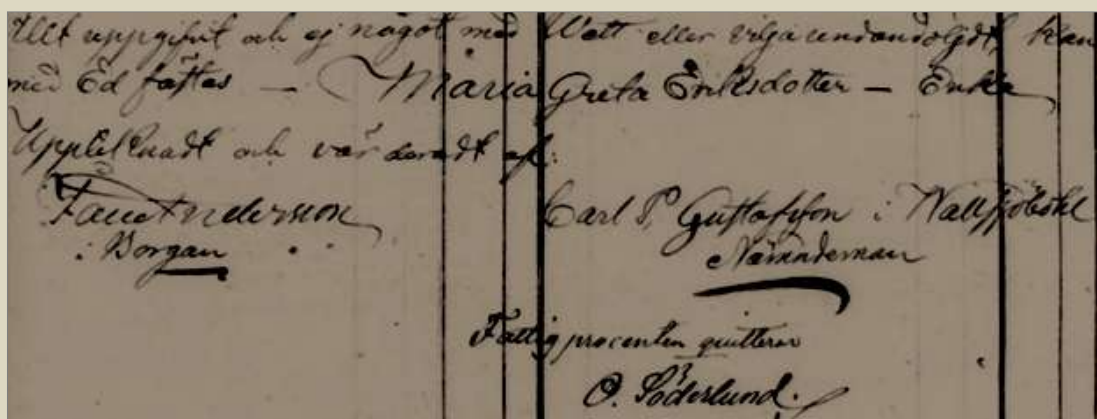 uppgifvit och ej något med Wett eller vilja undandöljdt, kan
med Ed fästas — Maria Greta Eriksdotter — Enka
Upptecknadt och värderadt af:
Andersson Carl P. Gustafsson i
i Borgan Nämndeman
Fattig procenten quitterar
O. Söderlund.